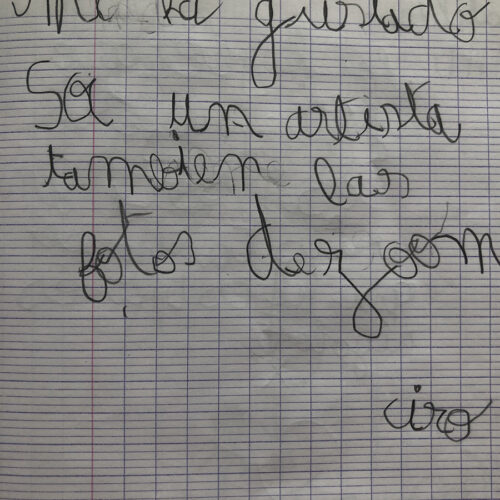 ha gustado
Sos un artista
tambien las
fotos der
ciro